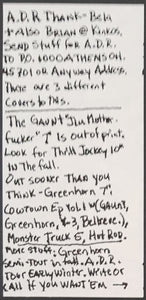 A.D.R Thank= Bela
+ Also Brian @ Kinkos.
Send Stuff for A.D.R.
To PO. 1000 Athens OH.
45701 or Any way Address.
There are 3 different
Covers to this.
The Gaunt "Jim Mother-
Fucker" 7" is out of print.
Look for Thrill Jockey 10"
In The fall.
Out sooner Than you
Think - Greenhorn 7",
Cowtown Ep Vol 1 w/ (Gaunt,
Greenhorn, & 3, Belreve.),
Monster Truck 5, Hot Rod.
More Stuff. Greenhorn
Semi-Tour in fall. A.D.R.
Tour Early Winter. Write or
Call If you WANT 'EM →